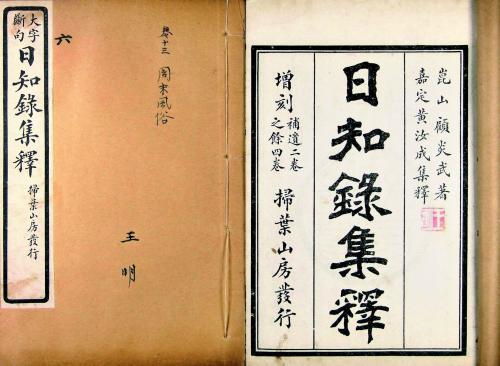 大字
斷句
日知錄集釋
掃葉山房發行
六
卷十三 周末風俗
王明
崑山顧炎武著
嘉定黃汝成集釋
日知錄集釋
增刻
補遺二卷
之餘四卷
掃葉山房發行